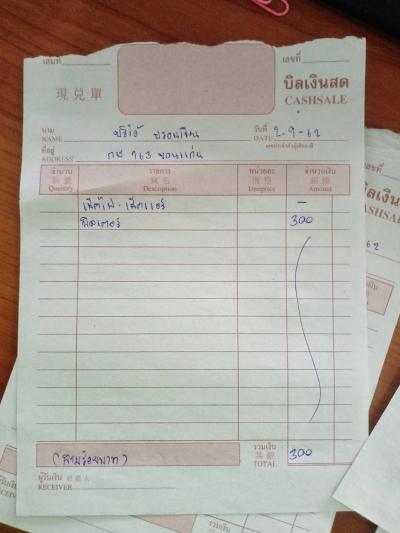 เล่มที่ เลขที่
現兌單
บิลเงินสด
CASHSALE
นาม
NAME
วันที่ 2-9-62
DATE
เลขประจำตัวผู้เสียภาษี
ที่อยู่
ADDRESS กย 963 ขอนแก่น
จำนวน รายการ หน่วยละ จำนวนเงิน
Quantity Description Uniprice Amount
เช็คไฟ - เช็คแอร์ -
ฟิลเตอร์ 300
(สามร้อยบาท)
รวมเงิน
共銀
TOTAL 300
ผู้รับเงิน
RECEIVER
บิลเงินสด
CASHSALE
62
จำนวนเงิน
Amount
รวมเงิน